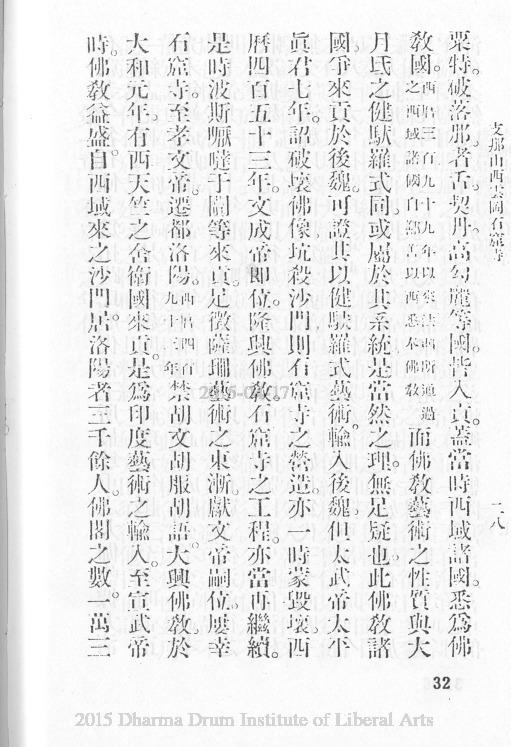 支那山西雲岡石窟寺
二八
粟特。破落那。者舌。契丹。高勾麗等國。皆入貢。蓋當時西域諸國。悉爲佛
教國。西曆三百九十九年以來法顯所通過之西域諸國自鄯善以西悉奉佛教而佛教藝術之性質與大
月氏之健馱羅式同。或屬於其系統。是當然之理。無足疑也。此佛教諸
國。爭來貢於後魏。可證其以健馱羅式藝術。輸入後魏。但太武帝太平
眞君七年。詔破壞佛像。坑殺沙門。則石窟寺之營造。亦一時蒙毀壞。西
曆四百五十三年。文成帝卽位。隆興佛教。石窟寺之工程。亦當再繼續。
是時波斯嚈噠于闐等來貢。是徵薩珊藝術之東漸。獻文帝嗣位。屢幸
石窟寺。至孝文帝。遷都洛陽。西曆四百九十三年禁胡文胡服胡語。大興佛教。於
大和元年。有西天竺之舍衛國來貢。是爲印度藝術之輸入。至宣武帝
時。佛教益盛。自西域來之沙門。居洛陽者三千餘人。佛閣之數。一萬三
32
2015 Dharma Drum Institute of Liberal Arts